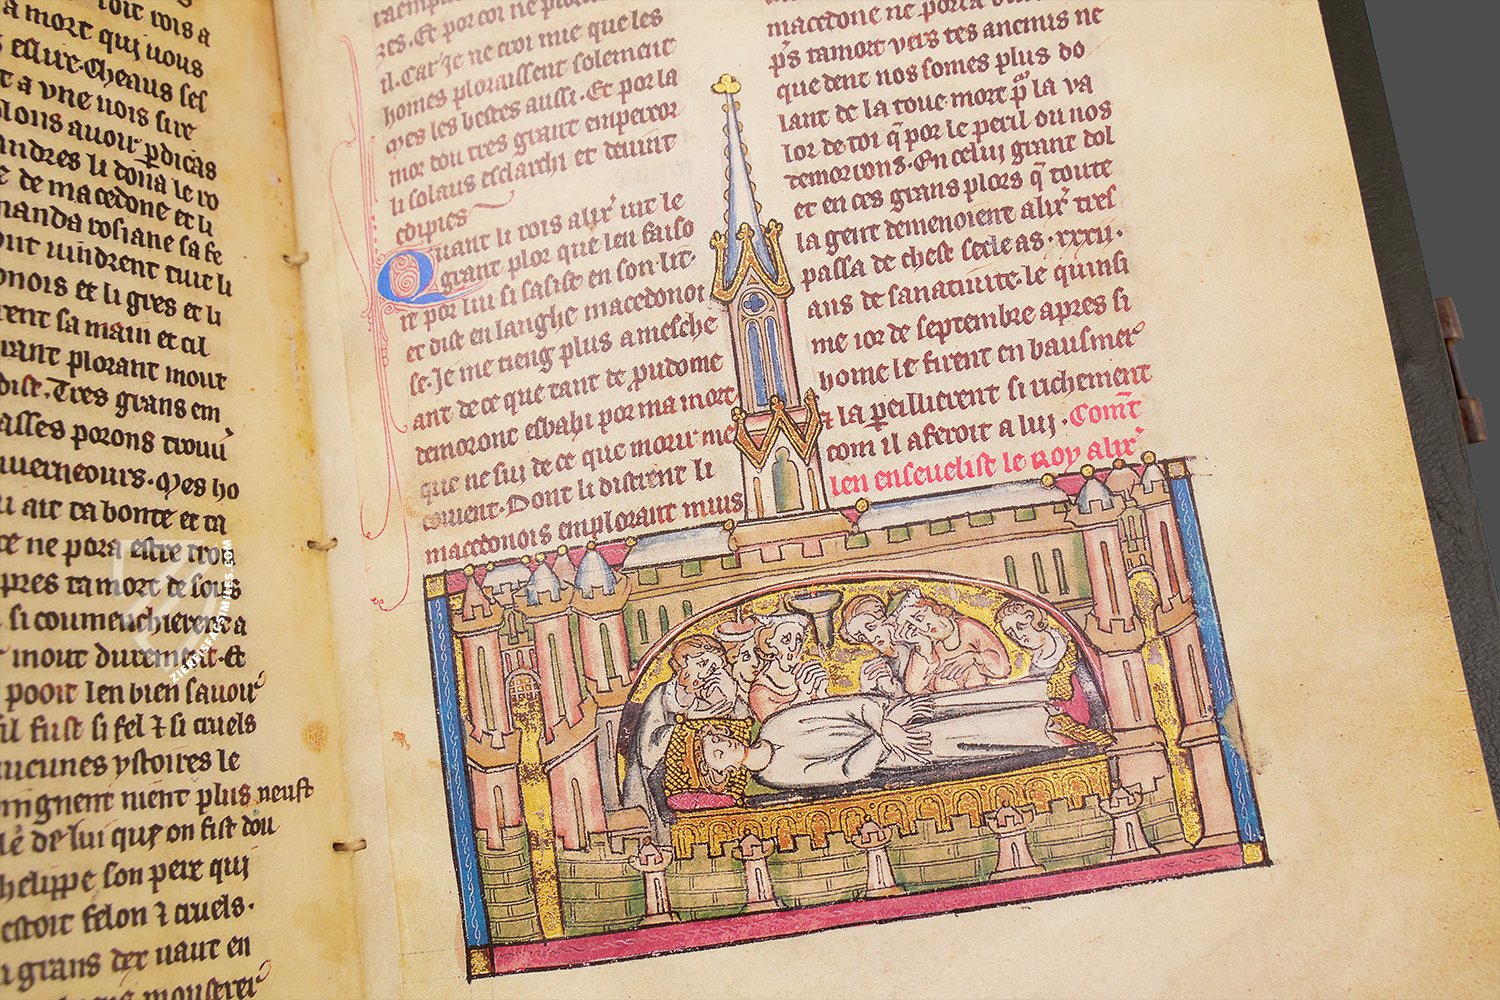 a mort qui vous
eslire. Cheaus ses
t a vne uois sire
plons auoir pdicas
andres li dona le ro
e de macedone et li
manda rosiane sa fe
ont uindrent tuit li
onois et li gres et li
rent sa main et cil
uant plorant mout
dist. Tres grans em
asses porons trouu
uuerneours. Mes ho
u ait ta bonte et ta
ce ne pora estre trou
pres ta mort de sous
si coumenchierent a
mout durement. Et
pooit len bien sauoir
il fust si fel ⁊ si cruels
aucunes ystoires le
mignent nient plus neust
le de lui que on fist dou
helippe son pere qui
estoit felon ⁊ cruels.
grans der uaut en
zes. Et por coi ne plo
il. Car je ne croi mie que les
homes ploraissent solement
Mes les bestes aussi. Et por la
mor dou tres grant emperor
li solaus esclarchi et deuint
edipies
Quant li rois alixr uit le
grant plor que len faiso
it por lui si sasist en son lit.
et dist en langhe macedonoi
se. Je me tieng plus a mesche
ant de ce que tant de pudome
demoront esbahi por ma mort
que ne sui de ce que morir me
couient. Dont li distrent li
macedonois emplorant mius
macedone ne porra
ps ta mort vers tes anemis ne
que dent nos somes plus do
lant de la toue mort p la va
lor de toi q por le peril ou nos
demorons. En celui grant dol
et en ces grans plors q toute
la gent demenoient alixr tres
passa de chest secle as. xxxii.
ans de sa natiuite. le quinsi
me ior de septembre apres si
home le firent en bausmer
⁊ la peilluerent si richement
com il aferoit a lui. Comt
len enseuelist le Roy alixr
ZIEREIS FACSIMILES.COM